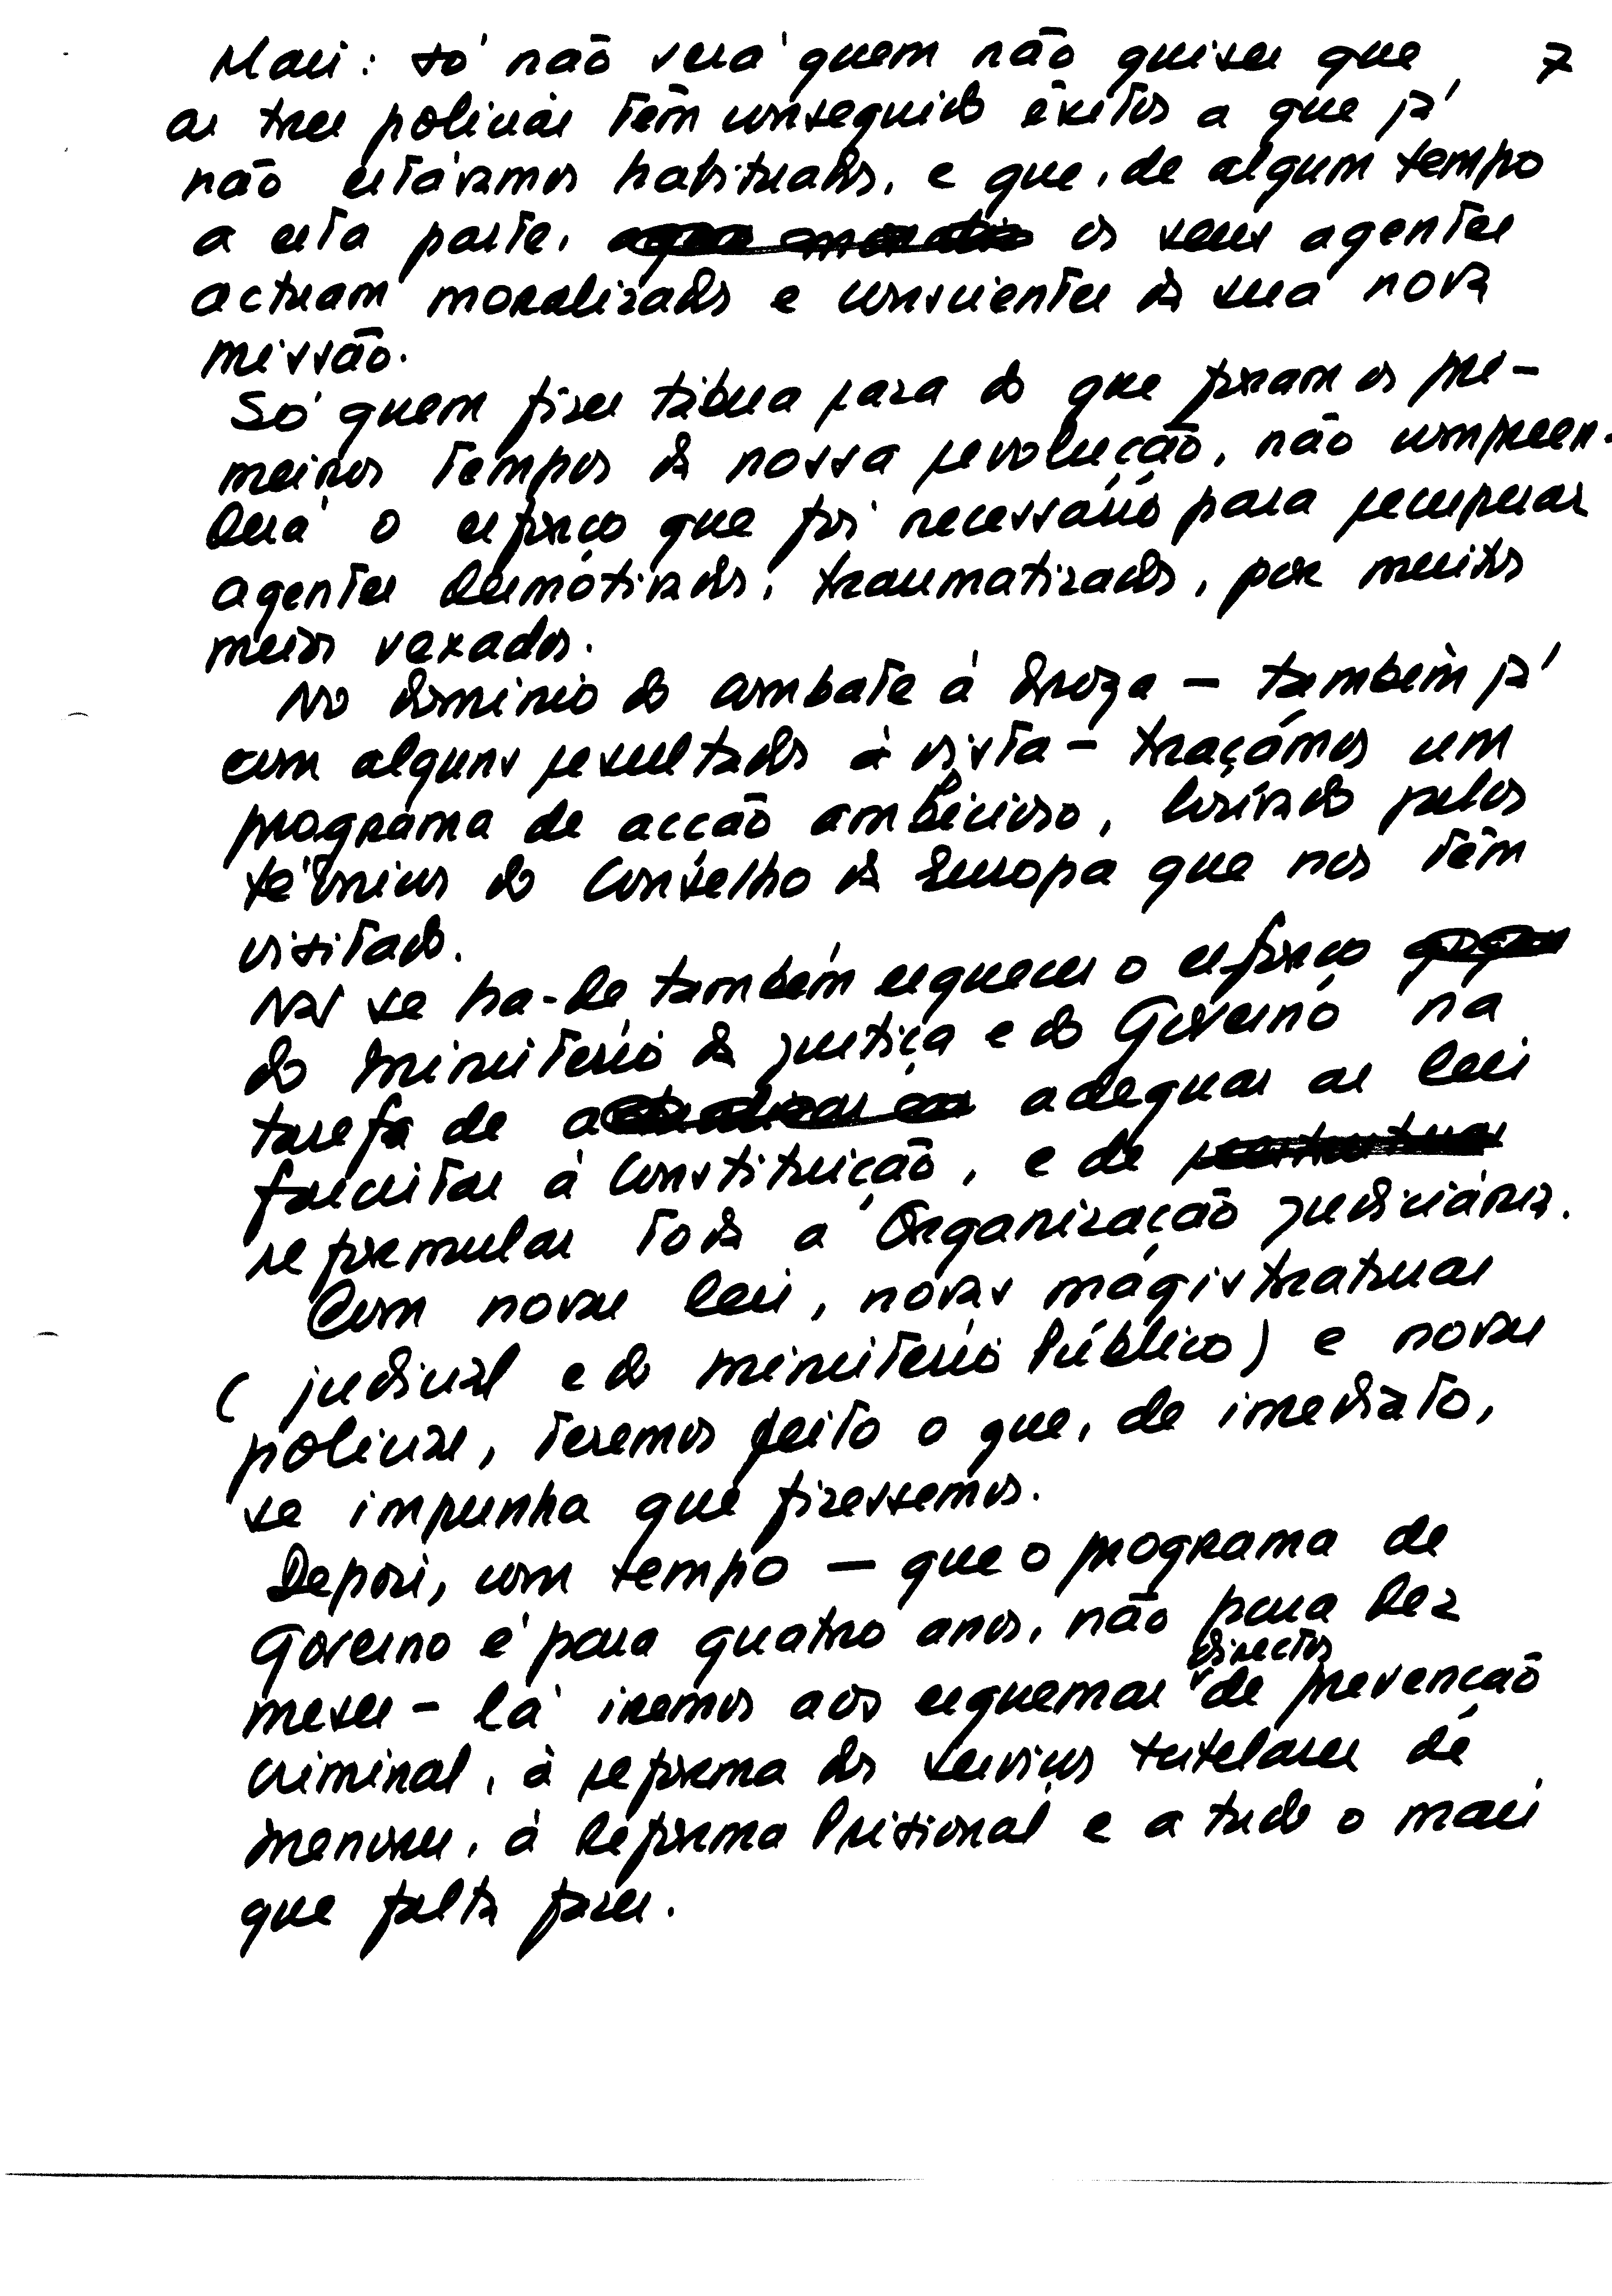 Mais: só não verá quem não quiser que 7
as tres policias têm conseguido êxitos a que já
não estávamos habituados, e que, de algum tempo
a esta parte, os seus agentes
actuam moralizados e conscientes da sua nova
missão.
Só quem fizer tábua rasa do que foram os pri-
meiros tempos da nossa revolução, não compreen-
derá o esforço que foi necessário para recuperar
agentes desmotivados, traumatizados, por muitos
meios vexados.
No dominio do combate à droga - também já
com alguns resultados à vista - traçámos um
programa de acção ambicioso, louvado pelos
técnicos do Conselho da Europa que nos têm
visitado.
Não se há-de também esquecer o esforço
do Ministério da Justiça e do Governo na
tarefa de adequar as leis
fascistas à Constituição, e de
reformular toda a Organização Judiciária.
Com novas leis, novas magistraturas
(judicial e do Ministério Público) e novas
policias, teremos feito o que, de imediato,
se impunha que fizessemos.
Depois, com tempo - que o programa de
Governo é para quatro anos, não para dez
directos
meses - lá iremos aos esquemas de prevenção
criminal, à reforma dos serviços tutelares de
menores, à Reforma Prisional e a tudo o mais
que falta fazer.